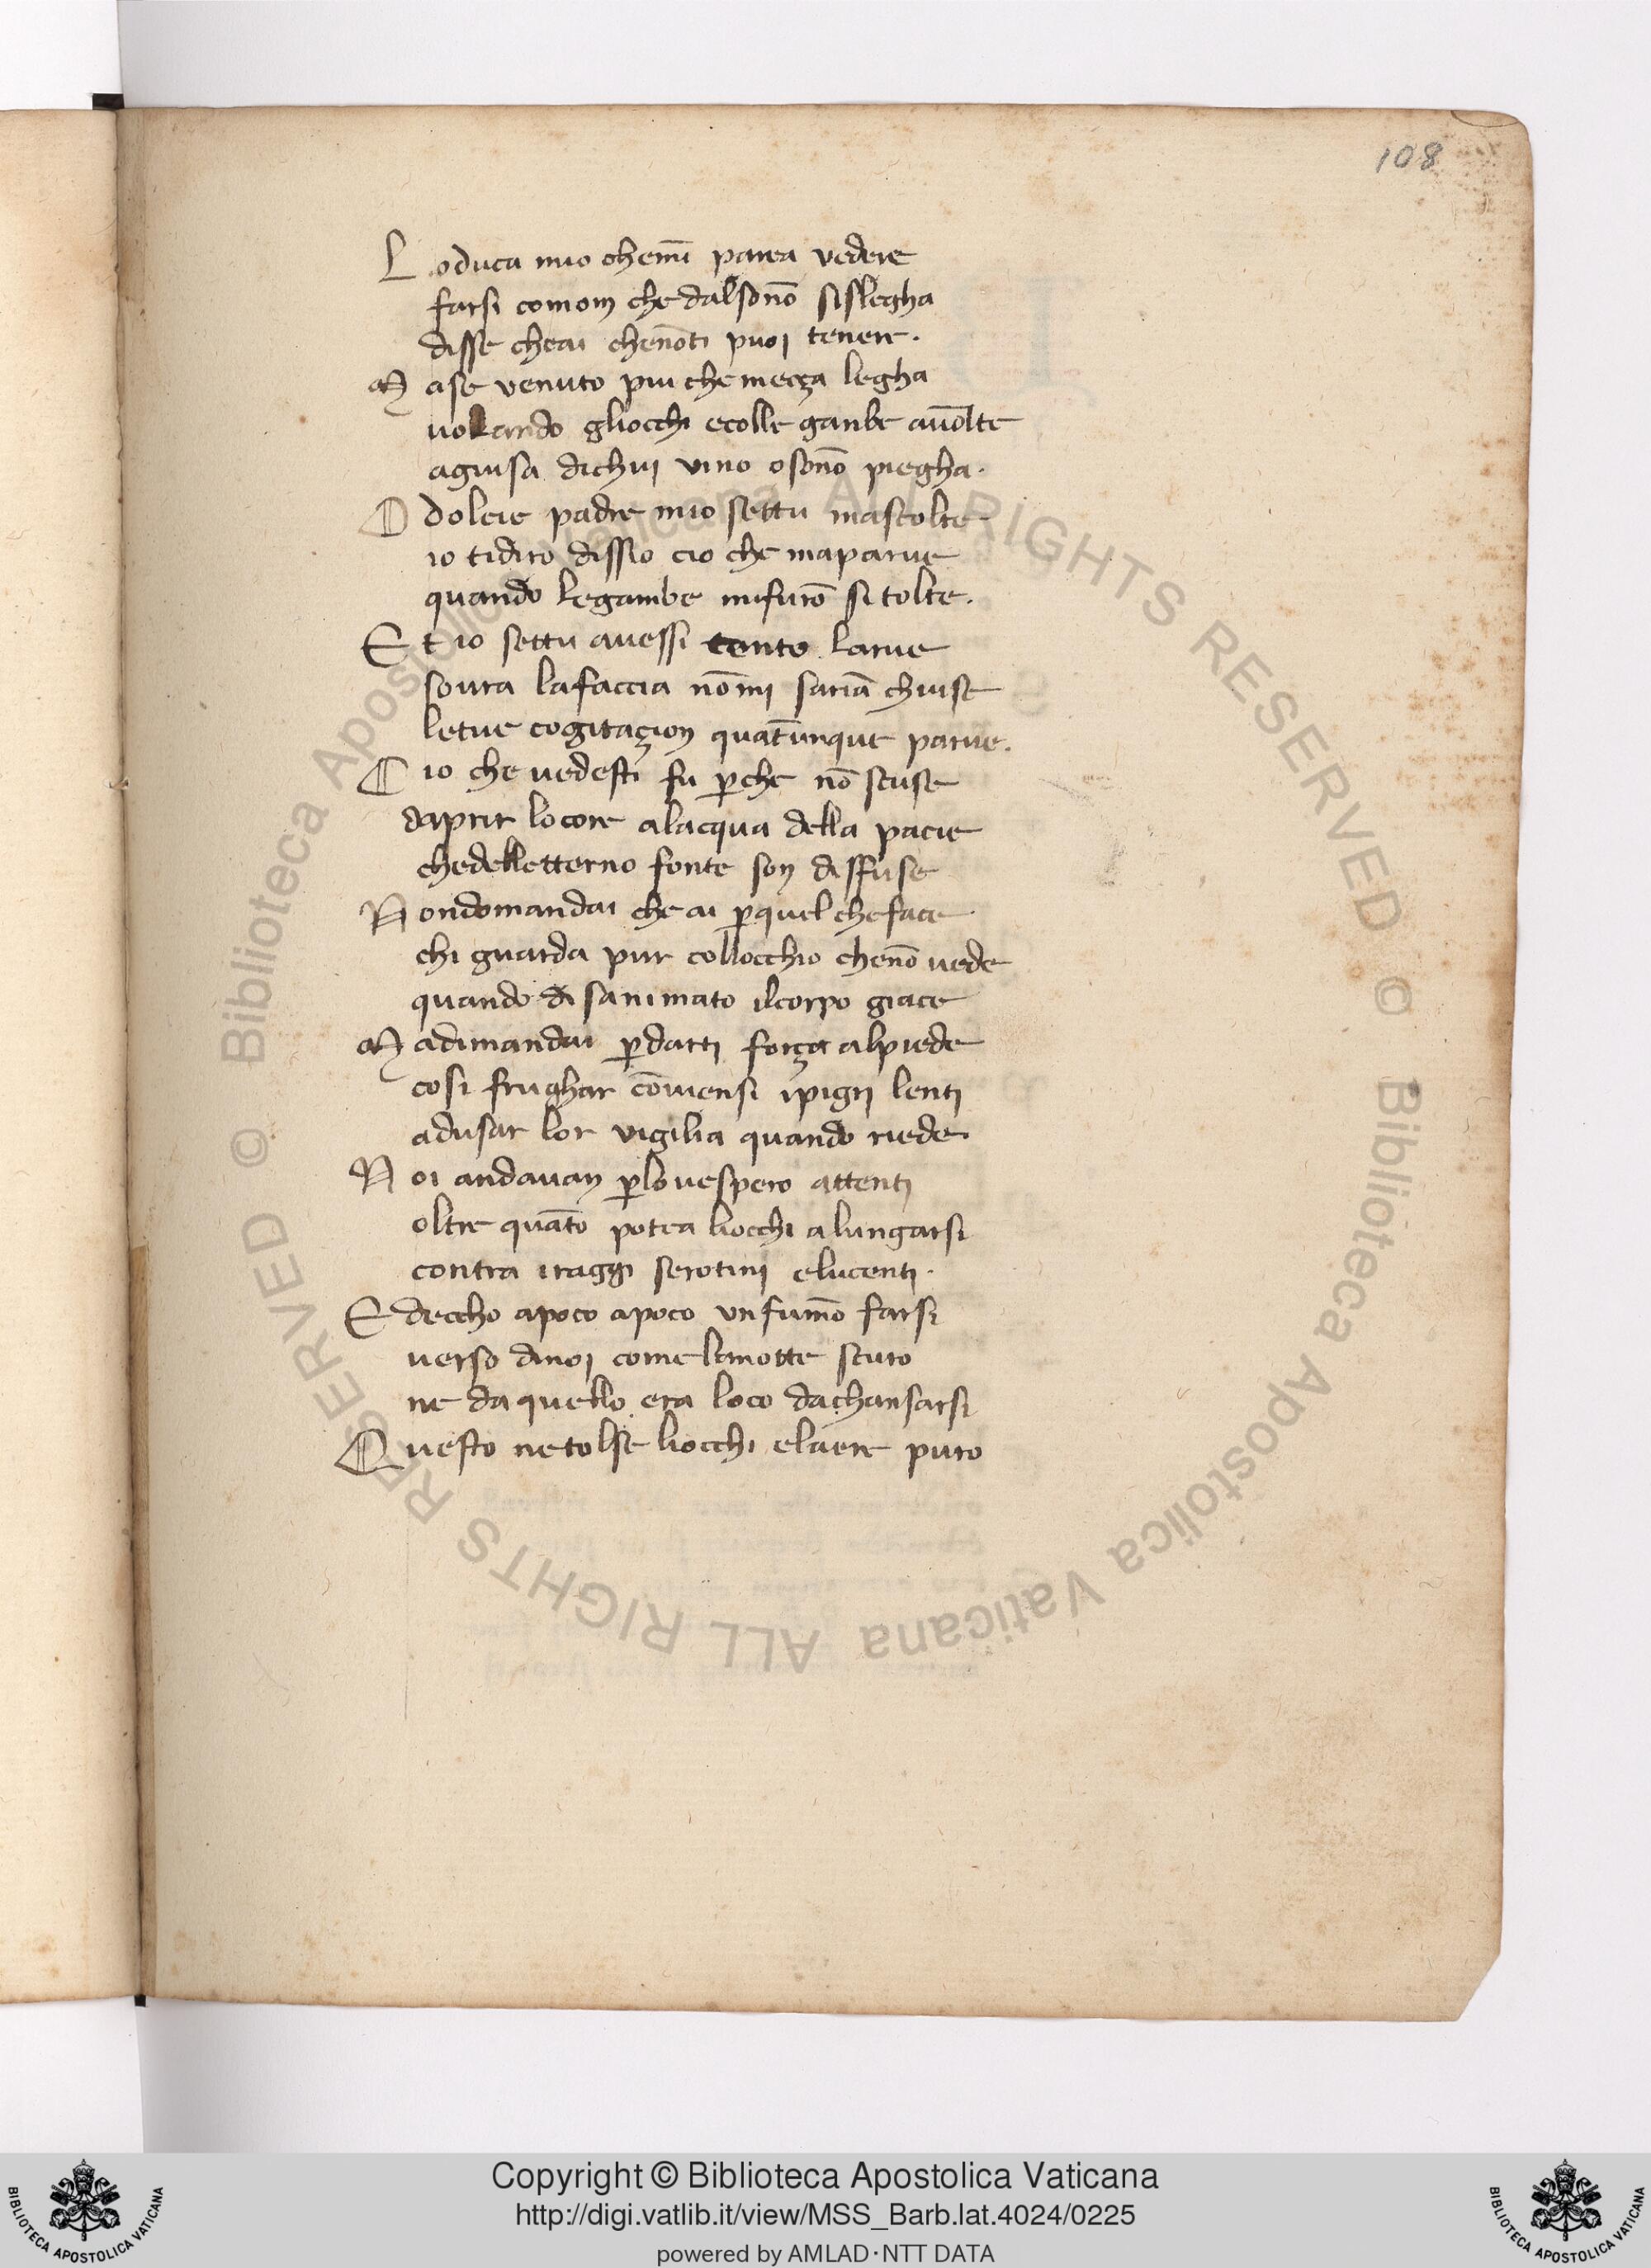 108
Loduca mio chemī parea vedere
farsi comom che dalsonō sislegha
disse cheai chenōti puoi tenere.
Mase venuto piu che mecça legha
uolando gliocchi ecolle ganbe auōlte
aguisa dichui vino osonō piegha.
O dolcie padre mio settu mascolte
io tidiro dissio cio che maparue
quando legambe mifurō si tolte.
Et io settu auessi cento larue
soura lafaccia nōmi sariā chiuse
letue cogitaçion quāt̄unque parue.
Cio che uedesti fu ꝑche nō scuse
daprir locore alacqua della pacie
chedelletterno fonte son diffuse
Nondomandai che ai ꝑquel cheface
chi guarda pur collocchio chenō uede
quando disanimato ilcorpo giace
Madimandai ꝑdarti força alpiede
cosi frughar cōuiensi ipigri lenti
adusar lor vigilia quando riede
Noi andauan ꝑlouespero attenti
oltre quāto potea liocchi alungarsi
contra iraggi serotini elucenti.
Edeccho apoco apoco vnfumō farsi
verso dinoi come lanotte scuro
ne daquello era loco dachansarsi
Questo netolse liocchi elaere puro
© Biblioteca Apostolica Vaticana ALL RIGHTS RESERVED © Biblioteca Apostolica Vaticana ALL RIGHTS RESERVED
Copyright © Biblioteca Apostolica Vaticana
http://digi.vatlib.it/view/MSS_Barb.lat.4024/0225
powered by AMLAD·NTT DATA
BIBLIOTECA APOSTOLICA VATICANA
BIBLIOTECA APOSTOLICA VATICANA